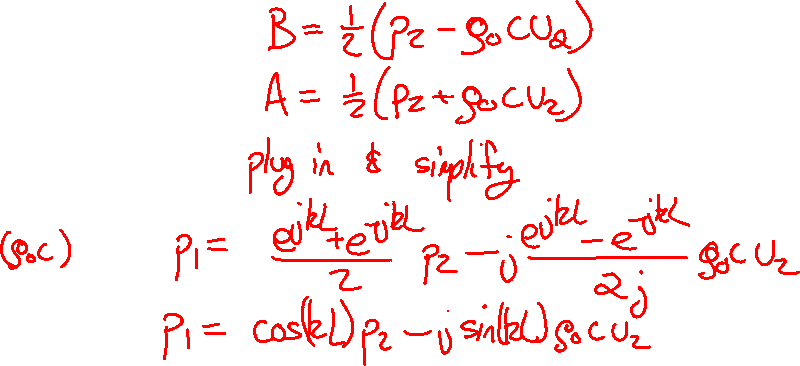 B = ½(p₂ − ρ₀cU₂)
A = ½(p₂ + ρ₀cU₂)
plug in & simplify
(ρ₀c) p₁ = (e^{jkL} + e^{-jkL})/2 p₂ − j (e^{jkL} − e^{-jkL})/2j ρ₀cU₂
p₁ = cos(kL)p₂ − j sin(kL)ρ₀cU₂